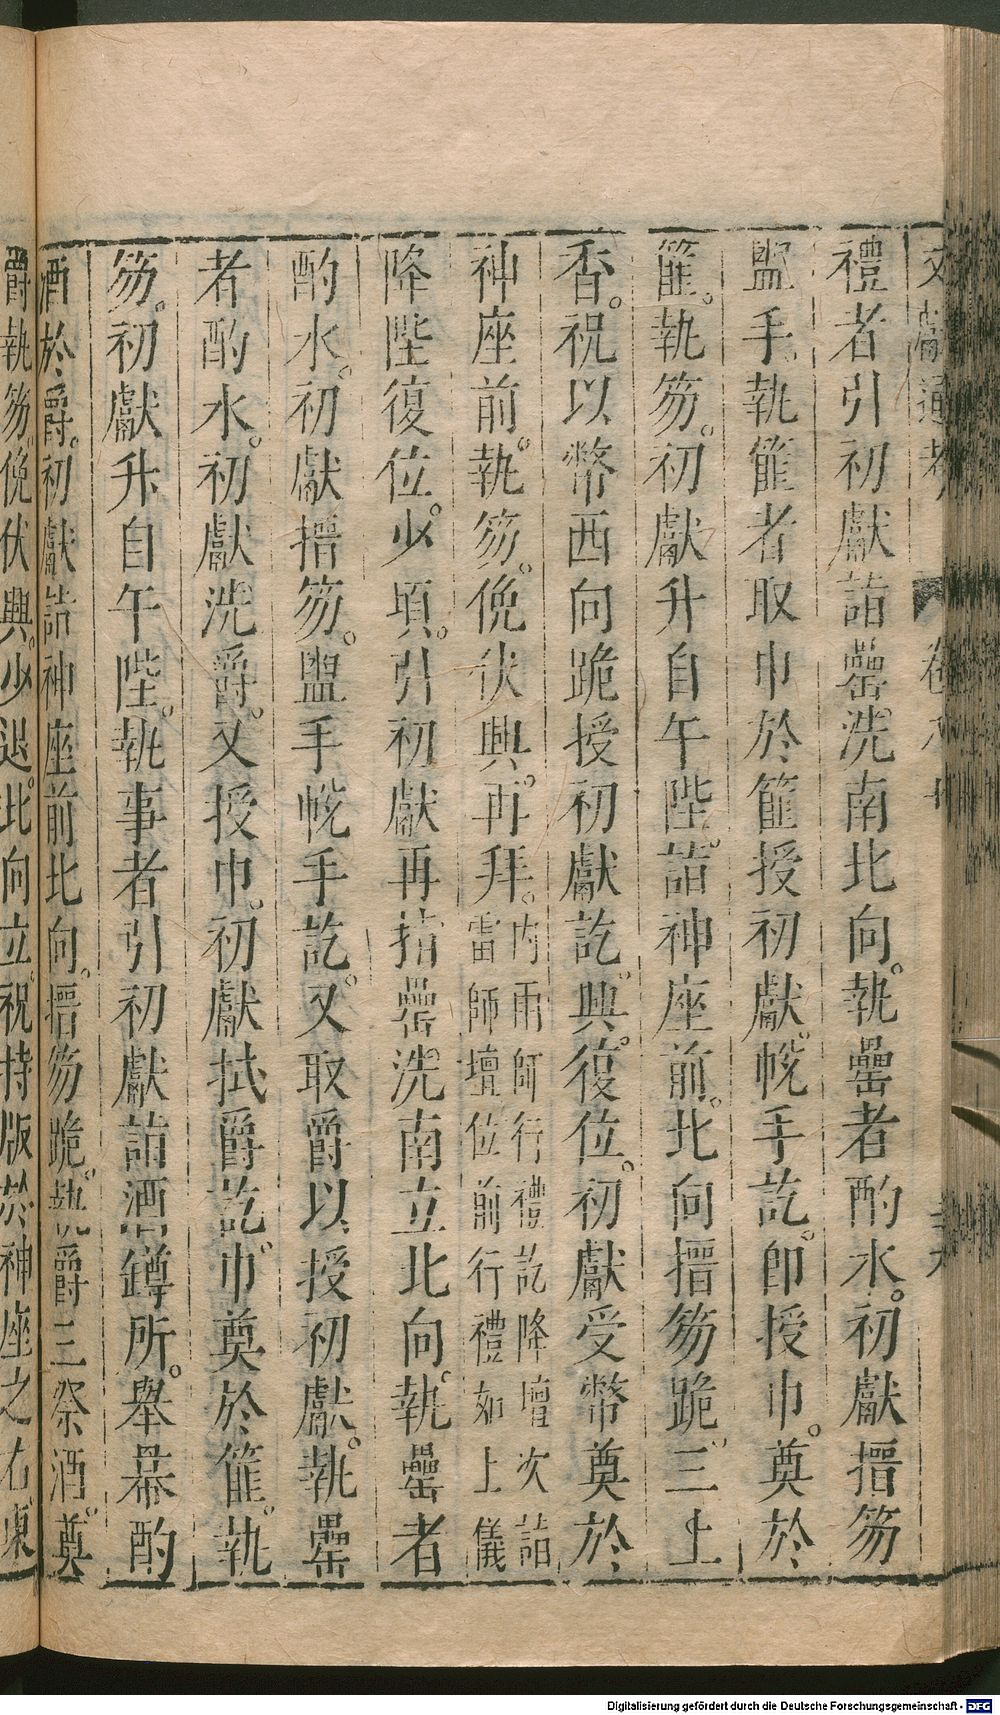 文獻通考 卷八十
禮者引初獻詣罍洗南北向。執罍者酌水。初獻搢笏
盥手。執篚者取巾於篚授初獻。帨手訖。卽授巾。奠於
篚。執笏。初獻升自午陛。詣神座前。北向搢笏跪。三上
香。祝以幣西向跪授初獻訖。興。復位。初獻受幣奠於
神座前。執笏。俛伏興。再拜。內雨師行禮訖降壇次詣雷師壇位前行禮如上儀
降陛復位。少頃。引初獻再詣罍洗南立北向。執罍者
酌水。初獻搢笏。盥手帨手訖。又取爵以授初獻。執罍
者酌水。初獻洗爵。又授巾。初獻拭爵訖。巾奠於篚。執
笏。初獻升自午陛。執事者引初獻詣酒罇所。舉冪酌
酒於爵。初獻詣神座前北向。搢笏跪。執爵三祭酒。奠
爵執笏。俛伏興。少退。北向立。祝持版於神座之右。東
Digitalisierung gefördert durch die Deutsche Forschungsgemeinschaft - DFG